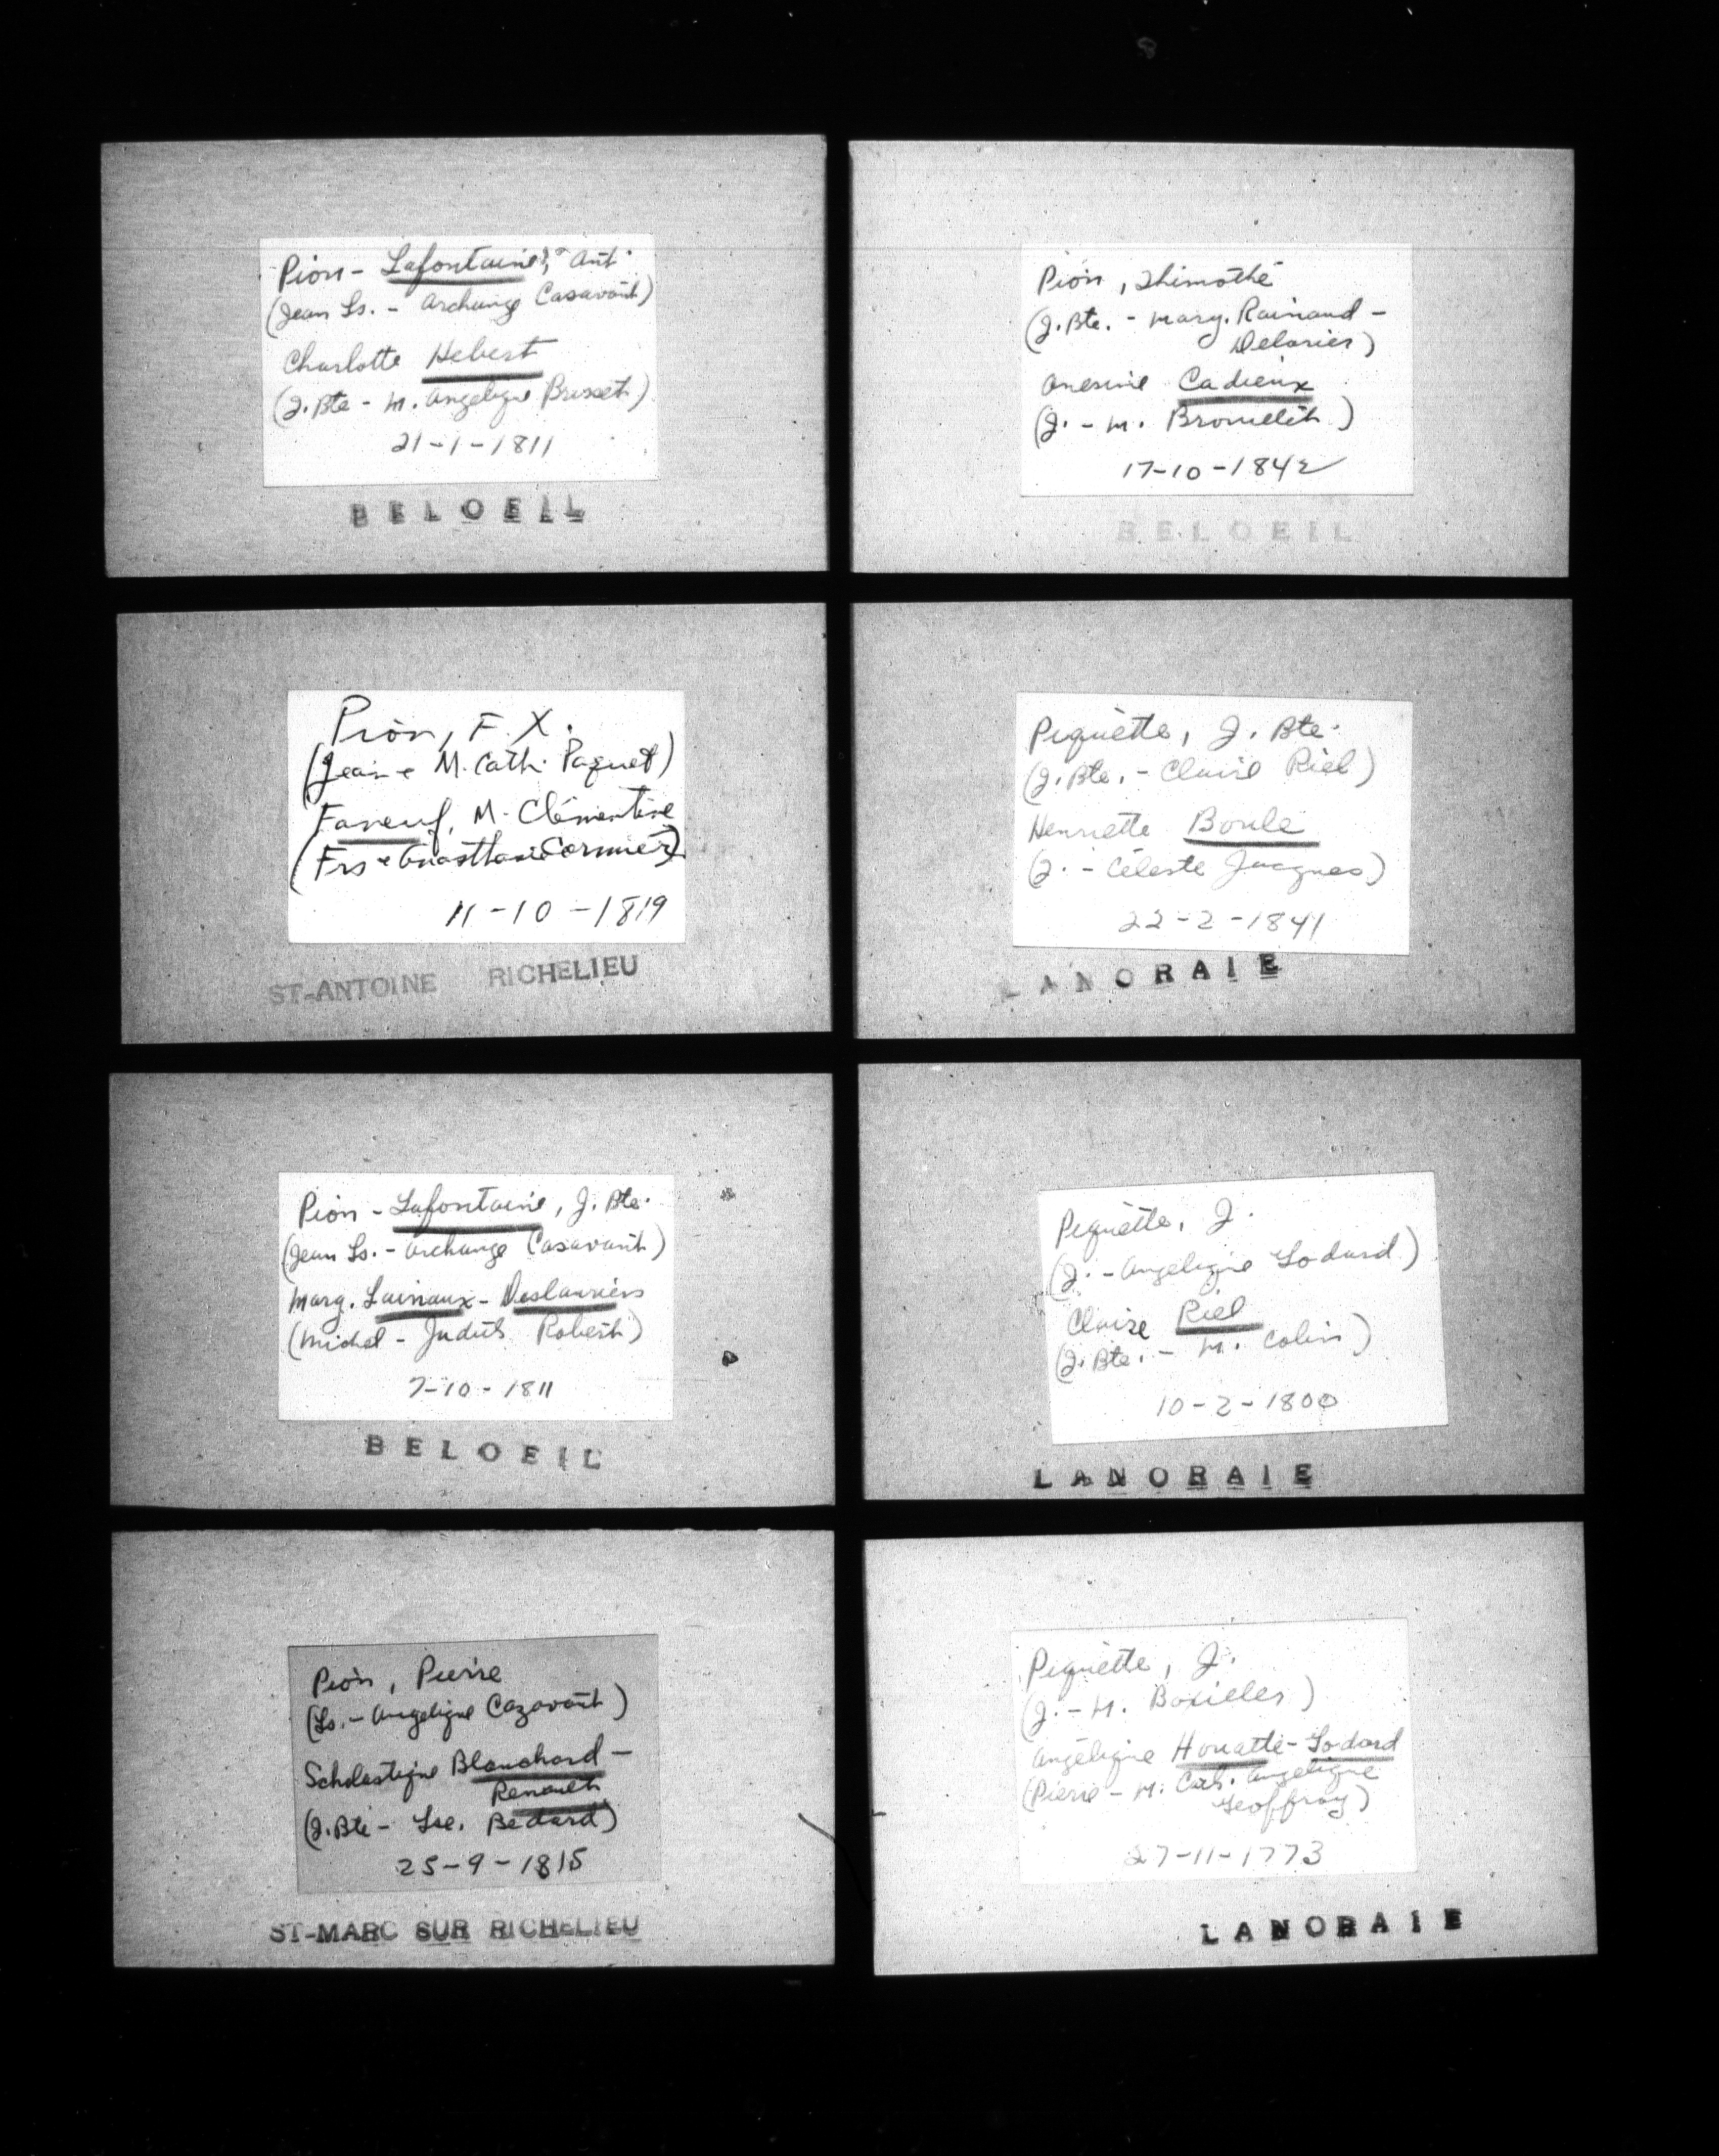 Pion - Lafontaine, Ant.
(Jean Ls. - Archange Casavant)
Charlotte Hebert
(J. Bte - M. Angelique Brisset)
21-1-1811
BELOEIL
Pion, F. X.
(Jean & M. Cath. Paquet)
Faneuf, M. Clémentine
(Frs & Anasthasie Cormier)
11-10-1819
ST-ANTOINE RICHELIEU
Pion - Lafontaine, J. Bte.
(Jean Ls. - Archange Casavant)
Marg. Lainaux - Deslauriers
(Michel - Judith Robert)
7-10-1811
BELOEIL
Pion, Pierre
(Ls. - Angelique Cazavant)
Scholastique Blanchard -
Renault
(J. Bte - Lse. Bedard)
25-9-1815
ST-MARC SUR RICHELIEU
Pion, Thimothé
(J. Bte. - Marg. Rainaud -
Delorier)
Onesime Cadieux
(J. - M. )
17-10-1842
BELOEIL
Piquette, J. Bte.
(J. Bte. - Claire Riel)
Henriette Boule
(J. - Céleste Jacques)
22-2-1841
LANORAIE
Piquette, J.
(J. - Angelique Godard)
Claire Riel
(J. Bte. - M. Colin)
10-2-1800
LANORAIE
Piquette, J.
(J. - M. )
Angélique Houatte - Godard
(Pierre - M. Cath. Angelique
Geoffroy)
27-11-1773
LANORAIE